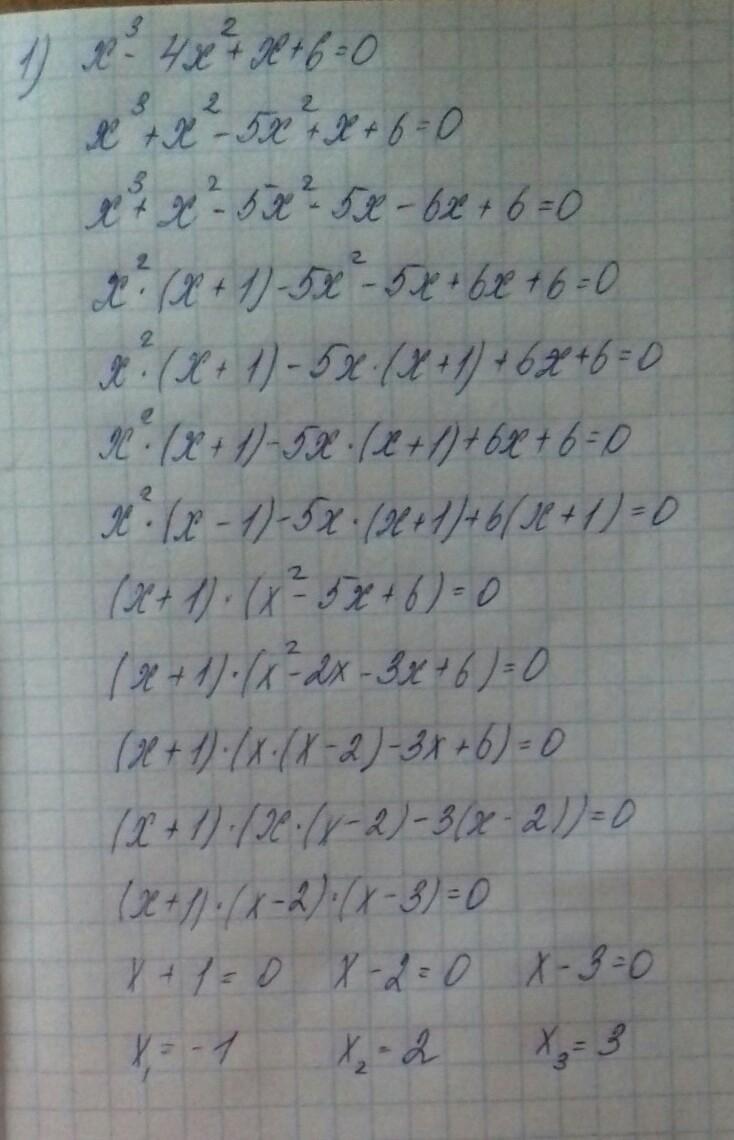 1) x³ - 4x² + x + 6 = 0
x³ + x² - 5x² + x + 6 = 0
x³ + x² - 5x² - 5x - 6x + 6 = 0
x² · (x + 1) - 5x² - 5x + 6x + 6 = 0
x² · (x + 1) - 5x · (x + 1) + 6x + 6 = 0
x² · (x + 1) - 5x · (x + 1) + 6x + 6 = 0
x² · (x - 1) - 5x · (x + 1) + 6(x + 1) = 0
(x + 1) · (x² - 5x + 6) = 0
(x + 1) · (x² - 2x - 3x + 6) = 0
(x + 1) · (x · (x - 2) - 3x + 6) = 0
(x + 1) · (x · (x - 2) - 3(x - 2)) = 0
(x + 1) · (x - 2) · (x - 3) = 0
x + 1 = 0 x - 2 = 0 x - 3 = 0
x₁ = -1 x₂ = 2 x₃ = 3